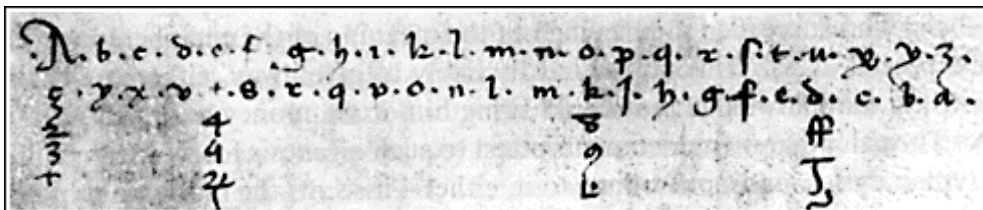 .A.b.c.d.e.f.g.h.i.k.l.m.n.o.p.q.r.ſ.t.u.x.y.z.
z.y.x.v.t.s.r.q.p.o.n.l.m.k.j.h.g.f.e.d.c.b.a.
2 4 8 ff
3 4 9
+